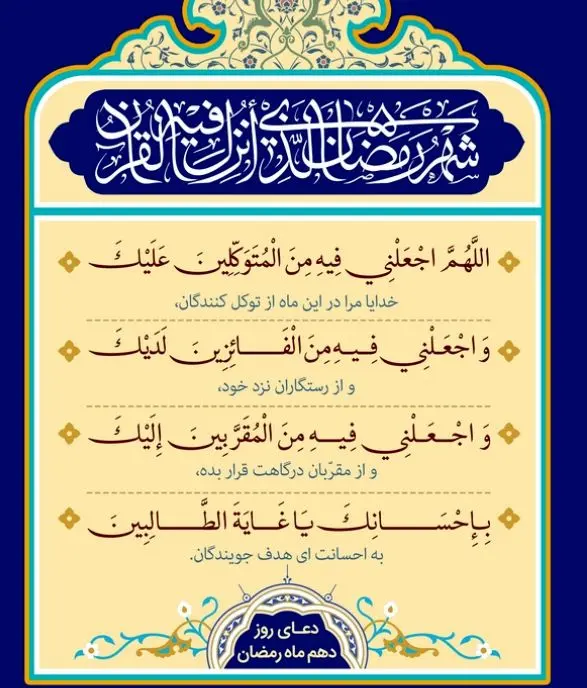 شهر رمضان الذي أنزل فيه القرآن
اللَّهُمَّ اجْعَلْنِي فِيهِ مِنَ الْمُتَوَكِّلِينَ عَلَيْكَ
خدایا مرا در این ماه از توکل کنندگان،
وَ اجْعَلْنِي فِيهِ مِنَ الْفَائِزِينَ لَدَيْكَ
و از رستگاران نزد خود،
وَ اجْعَلْنِي فِيهِ مِنَ الْمُقَرَّبِينَ إِلَيْكَ
و از مقرّبان درگاهت قرار بده،
بِإِحْسَانِكَ يَا غَايَةَ الطَّالِبِينَ
به احسانت ای هدف جویندگان.
دعای روز
دهم ماه رمضان